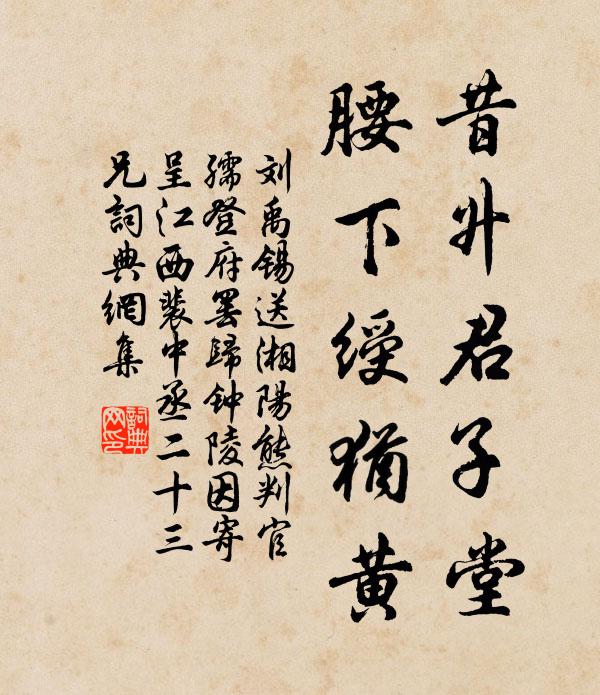 昔升君子堂
腰下绶犹黄
刘禹锡送湘陽熊判官
孺登府罢歸钟陵因寄
呈江西裴中丞二十三
兄詞典網集
詞典
网印